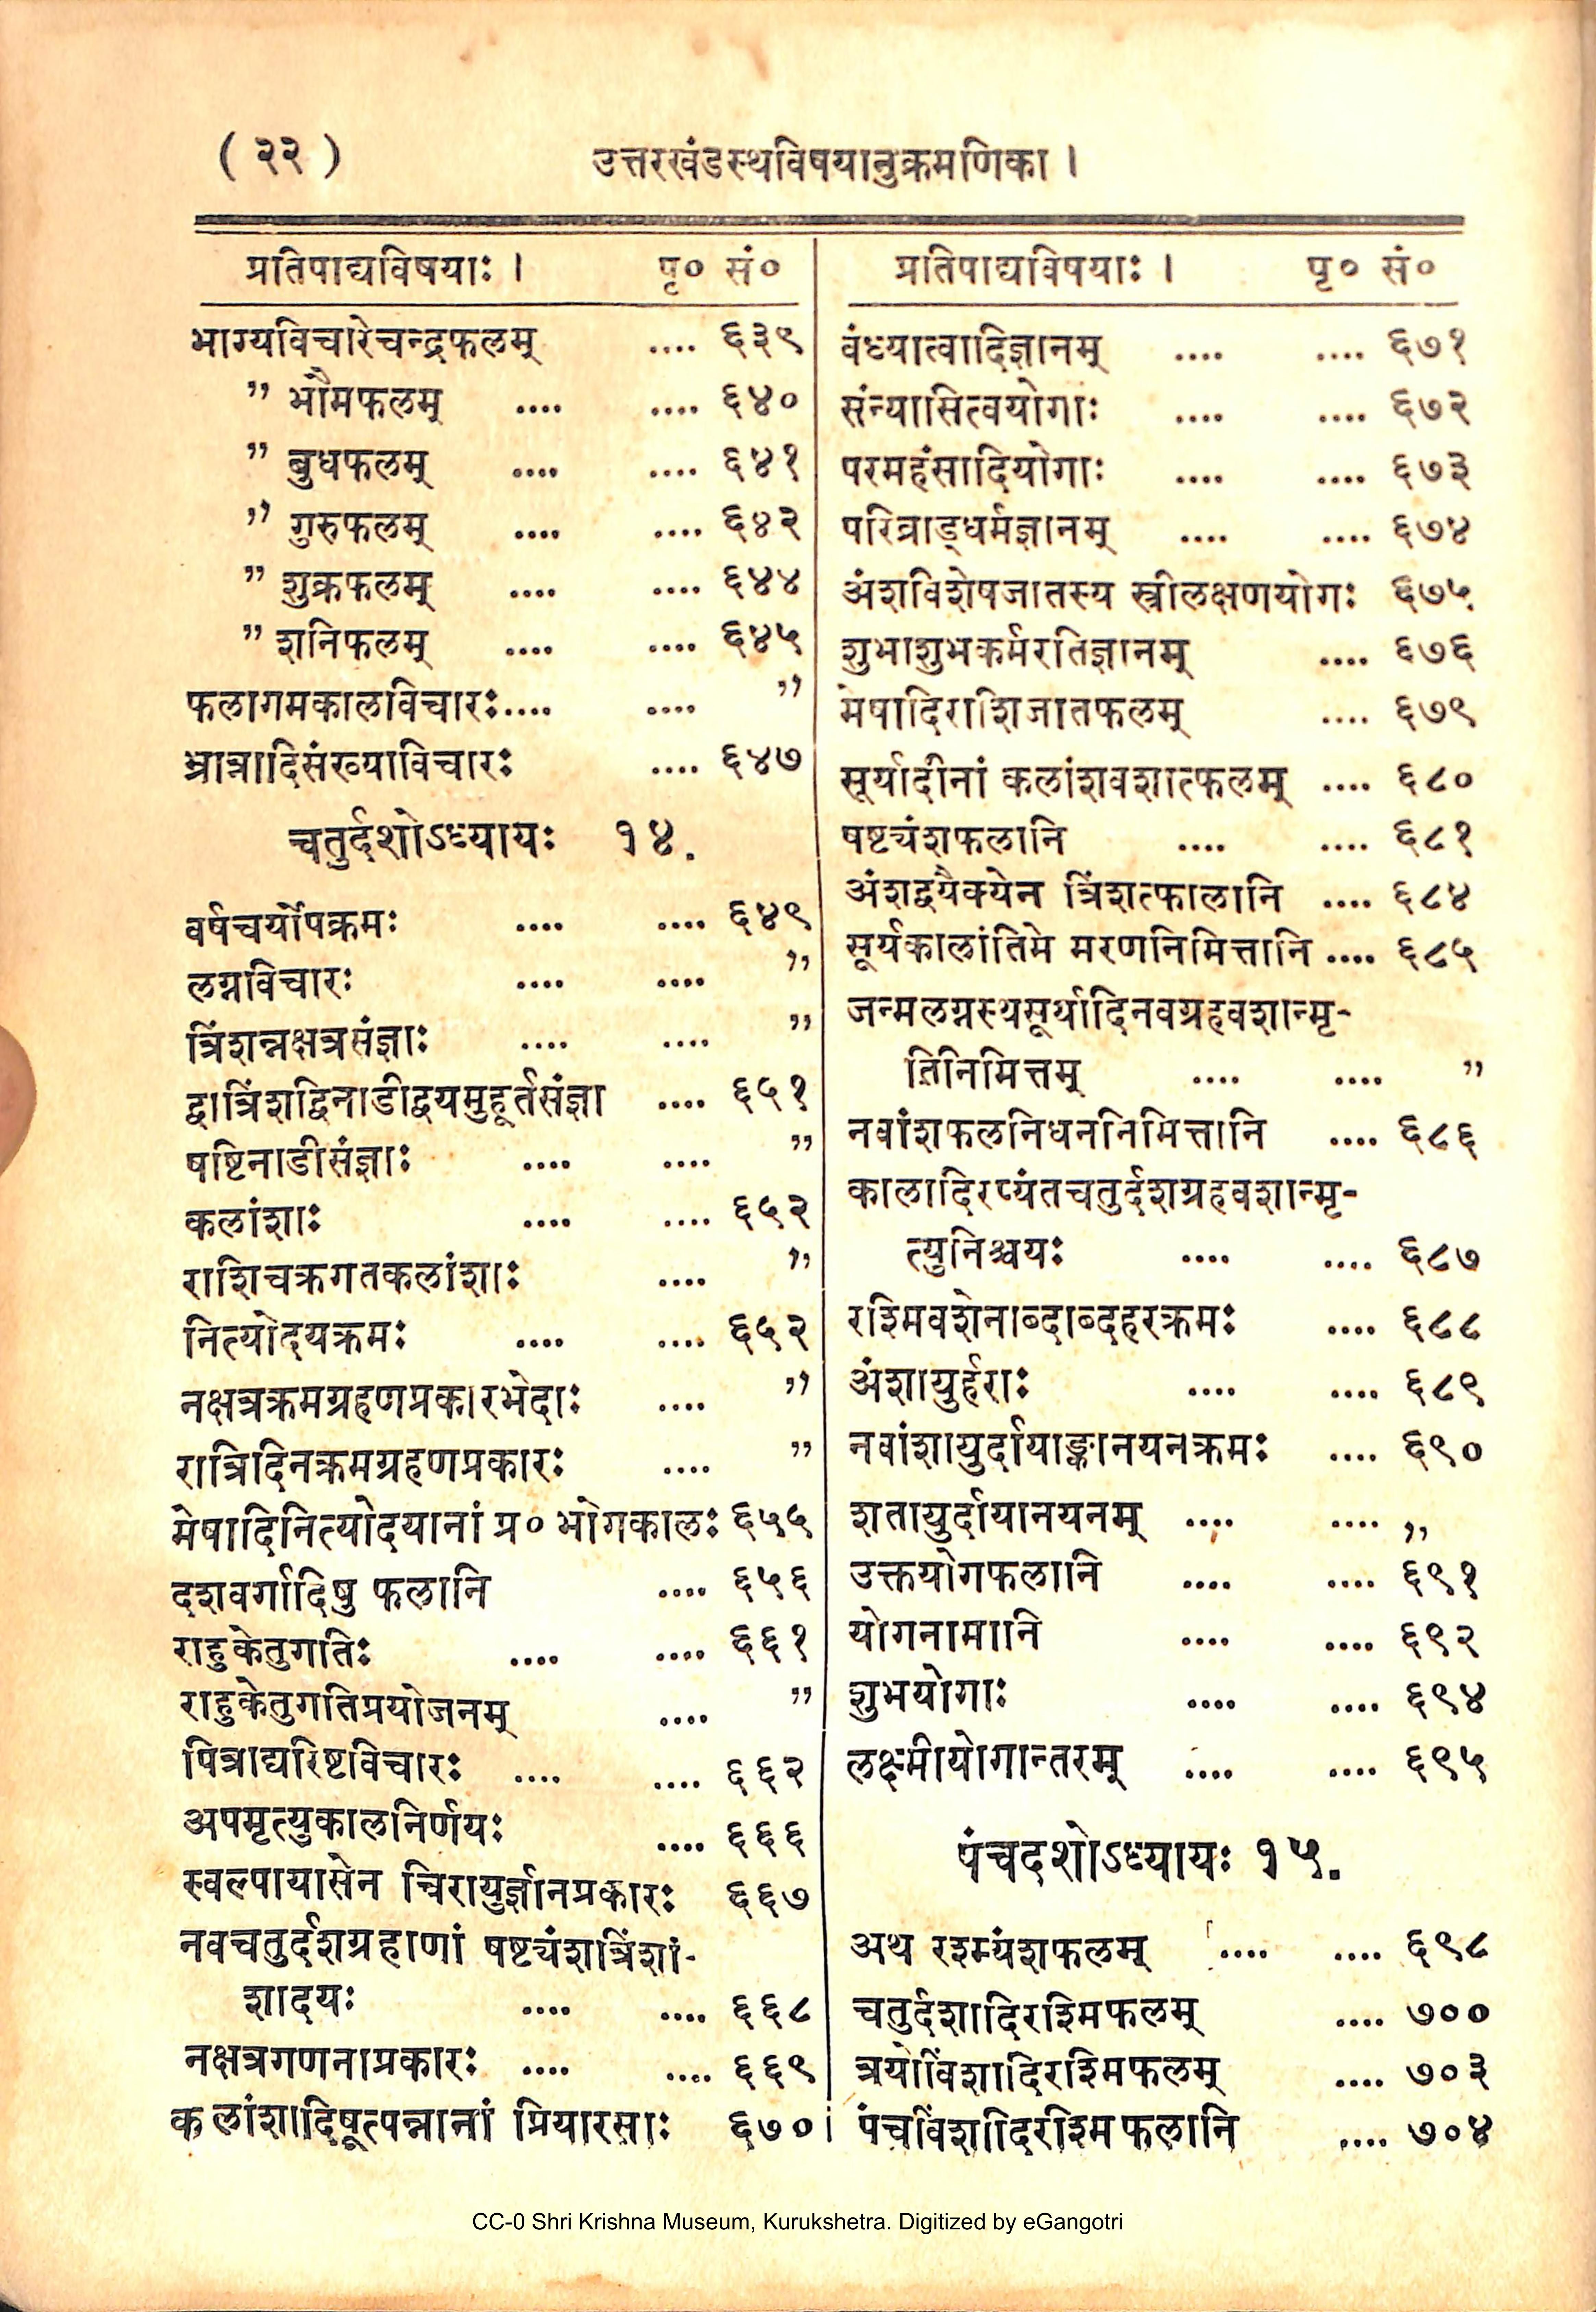 ( २२ ) उत्तरखंडस्थविषयानुक्रमणिका ।
प्रतिपाद्यविषयाः । पृ० सं०
भाग्यविचारेचन्द्रफलम् .... ६३९
” भौमफलम् .... .... ६४०
” बुधफलम् .... .... ६४१
” गुरुफलम् .... .... ६४२
” शुक्रफलम् .... .... ६४४
” शनिफलम् .... .... ६४५
फलागमकालविचारः.... .... ”
भ्रात्रादिसंख्याविचारः .... ६४७
चतुर्दशोऽध्यायः १४.
वर्षचर्योपक्रमः .... .... ६४९
लग्नविचारः .... .... ”
त्रिंशन्नक्षत्रसंज्ञाः .... .... ”
द्वात्रिंशद्विनाडीद्वयमुहूर्तसंज्ञा .... ६५१
षष्टिनाडीसंज्ञाः .... .... ”
कलांशाः .... .... ६५२
राशिचक्रगतकलांशाः .... ”
नित्योदयक्रमः .... .... ६५२
नक्षत्रक्रमग्रहणप्रकारभेदाः .... ”
रात्रिदिनक्रमग्रहणप्रकारः .... ”
मेषादिनित्योदयानां प्र० भोगकालः ६५५
दशवर्गादिषु फलानि .... ६५६
राहुकेतुगतिः .... .... ६६१
राहुकेतुगतिप्रयोजनम् .... ”
पित्राद्यरिष्टविचारः .... .... ६६२
अपमृत्युकालनिर्णयः .... ६६६
स्वल्पायासेन चिरायुर्ज्ञानप्रकारः ६६७
नवचतुर्दशग्रहाणां षष्ट्यंशत्रिंशां-
शादयः .... .... ६६८
नक्षत्रगणनाप्रकारः .... .... ६६९
कलांशादिषूत्पन्नानां प्रियारसाः ६७०
प्रतिपाद्यविषयाः । पृ० सं०
वंध्यात्वादिज्ञानम् .... .... ६७१
संन्यासित्वयोगाः .... .... ६७२
परमहंसादियोगाः .... .... ६७३
परिव्राड्धर्मज्ञानम् .... .... ६७४
अंशविशेषजातस्य स्त्रीलक्षणयोगः ६७५
शुभाशुभकर्मरतिज्ञानम् .... ६७६
मेषादिराशिजातफलम् .... ६७९
सूर्यादीनां कलांशवशात्फलम् .... ६८०
षष्ट्यंशफलानि .... .... ६८१
अंशद्वयैक्येन त्रिंशत्फालानि .... ६८४
सूर्यकालांतिमे मरणनिमित्तानि .... ६८५
जन्मलग्नस्थसूर्यादिनवग्रहवशान्मृ-
तिनिमित्तम् .... .... ”
नवांशफलनिधननिमित्तानि .... ६८६
कालादिरप्यंतचतुर्दशग्रहवशान्मृ-
त्युनिश्चयः .... .... ६८७
रश्मिवशेनाब्दाब्दहरक्रमः .... ६८८
अंशायुर्हराः .... .... ६८९
नवांशायुर्दायाङ्कानयनक्रमः .... ६९०
शतायुर्दायानयनम् .... .... ,,
उक्तयोगफलानि .... .... ६९१
योगनामानि .... .... ६९२
शुभयोगाः .... .... ६९४
लक्ष्मीयोगान्तरम् .... .... ६९५
पंचदशोऽध्यायः १५.
अथ रश्म्यंशफलम् .... .... ६९८
चतुर्दशादिरश्मिफलम् .... ७००
त्रयोविंशादिरश्मिफलम् .... ७०३
पंचविंशादिरश्मिफलानि .... ७०४
CC-0 Shri Krishna Museum, Kurukshetra. Digitized by eGangotri